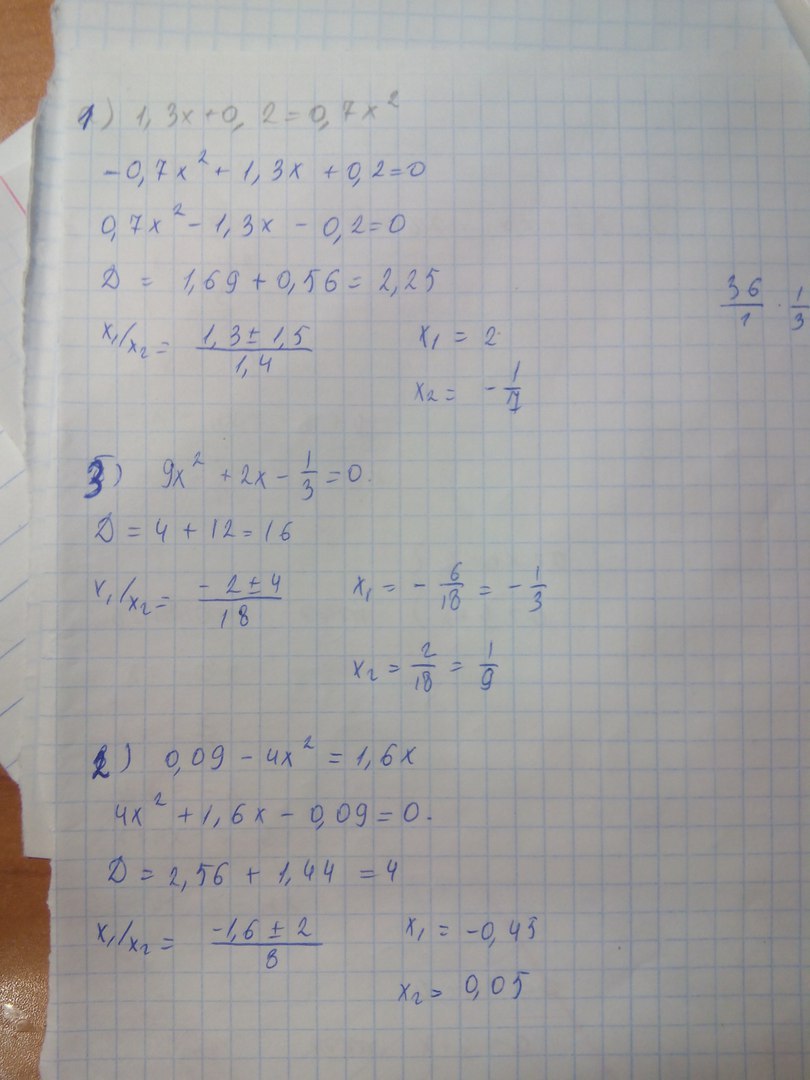 1) 1,3x+0,2=0,7x²
-0,7x²+1,3x+0,2=0
0,7x²-1,3x-0,2=0
D = 1,69+0,56=2,25
x₁/x₂= (1,3±1,5)/1,4 x₁ = 2
x₂ = -1/7
36/1 · 1/3
3) 9x²+2x-1/3=0.
D=4+12=16
x₁/x₂= (-2±4)/18 x₁ = -6/18 = -1/3
x₂ = 2/18 = 1/9
2) 0,09-4x²=1,6x
4x²+1,6x-0,09=0.
D=2,56+1,44=4
x₁/x₂= (-1,6±2)/8 x₁ = -0,45
x₂= 0,05